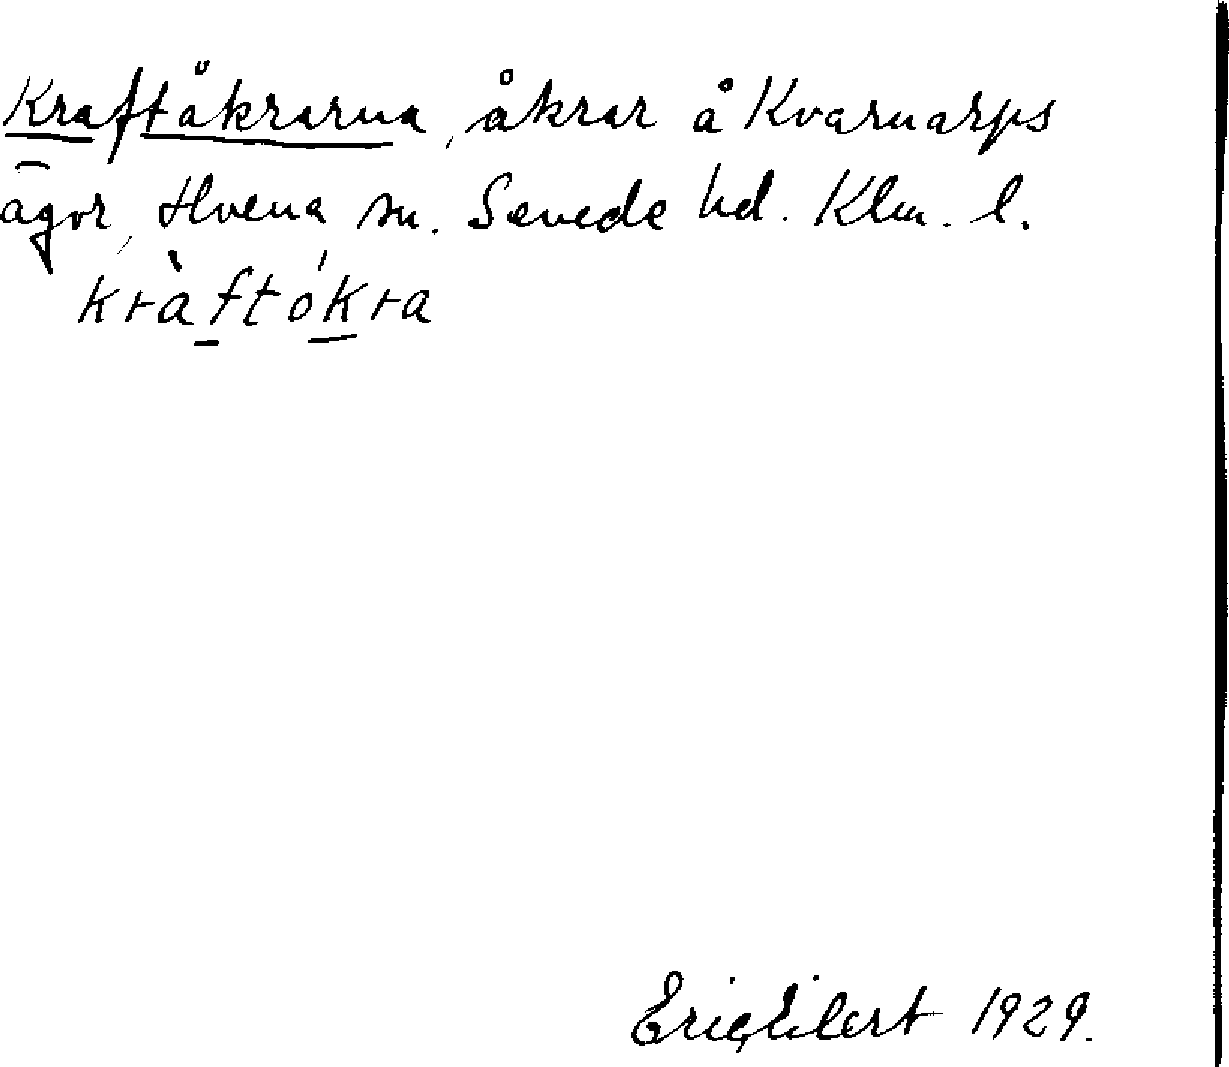 Kraftåkrarna, åkrar å Kvarnarps
ägor, Hvena sn. Sevede hd. Klm. l.
kràftókra
Eric Eilert 1929.